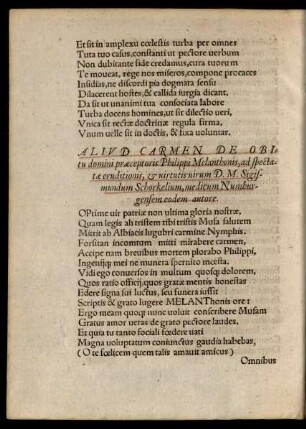 Et sit in amplexu cœlestis turba per omnes
Tuta tuo casus, constanti ut pectore uerbum
Non dubitante fide credamus, cura tuorum
Te moueat, rege nos miseros, compone procaces
Insidias, ne discordi pia dogmata sensu
Dilacerent hostes, & callida iurgia dicant,
Da sit ut unanimi tua consociata labore
Turba docens homines, ut sit dilectio ueri,
Vnica sit rectæ doctrinæ regula firma,
Vnum uelle sit in doctis, & fixa voluntas.
ALIVD CARMEN DE OBI-
tu domini præceptoris Philippi Melanthonis, ad specta-
tæ eruditionis, & uirtutis uirum D. M. Sigis-
mundum Schorkelium, medicum Numbur-
gensem eodem autore.
OPtime uir patriæ non ultima gloria nostræ,
Quam legis ah tristem tibi tristis Musa salutem
Mittit ab Albiacis lugubri carmine Nymphis.
Forsitan incomtum mitti mirabere carmen,
Accipe nam breuibus mortem plorabo Philippi,
Ingenijq; mei ne munera spernito mœsta.
Vidi ego conuersos in multum quosq; dolorem,
Quos ratio officij, quos gratæ mentis honestas
Edere signa sui luctus, seu funera iussit
Scriptis & grato lugere MELANThenis ore:
Ergo meam quoq; nunc uoluit conscribere Musam
Gratus amor ueras de grato pectore laudes.
Et quia tu tanto sociali fœdere uati
Magna voluptatum coniunctus gaudia habebas,
(O te fœlicem quem talis amauit amicus)
Omnibus